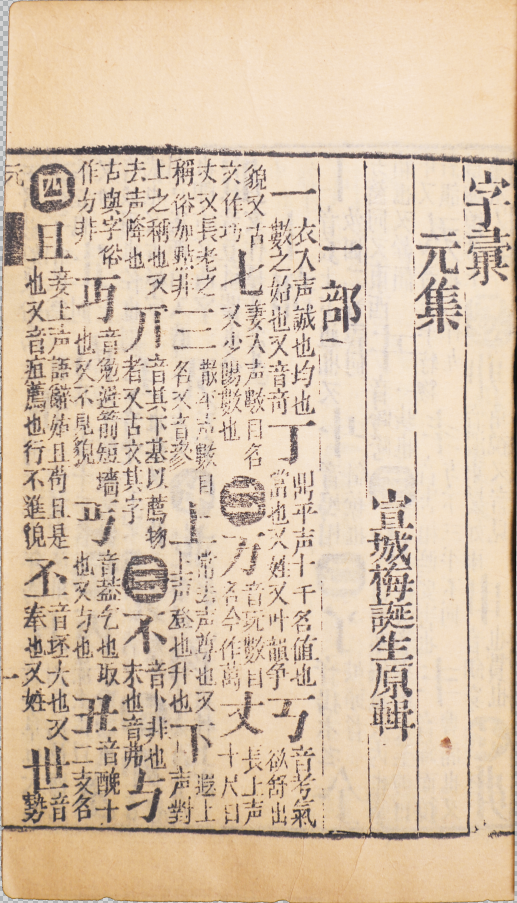 字彙
元集
宣城梅誕生原輯
一部
一衣入声誠也均也數之始也又音奇丁平声十千名值也當也又姓又叶韻争丂音考氣欲舒出
貌又古文作丂七妻入声數目名又少陽數也二万音玩數目名今作萬丈長上声十尺曰
丈又長老之稱俗加點非三散平声數目名又音参上常去声尊也又上声登也升也下遐上声對
上之稱也又去声降也丌音其下基以薦物者又古文其字三不音卜非也末也音弗与
古與字俗作方非丏音勉避箭短墻也又不見貌丐音蓋乞也取也又与也丑音醜十二支名
四且妾上声語辭姑且苟且是也又音疽薦也行不進貌丕音坯大也又奉也又姓世音勢
元
一